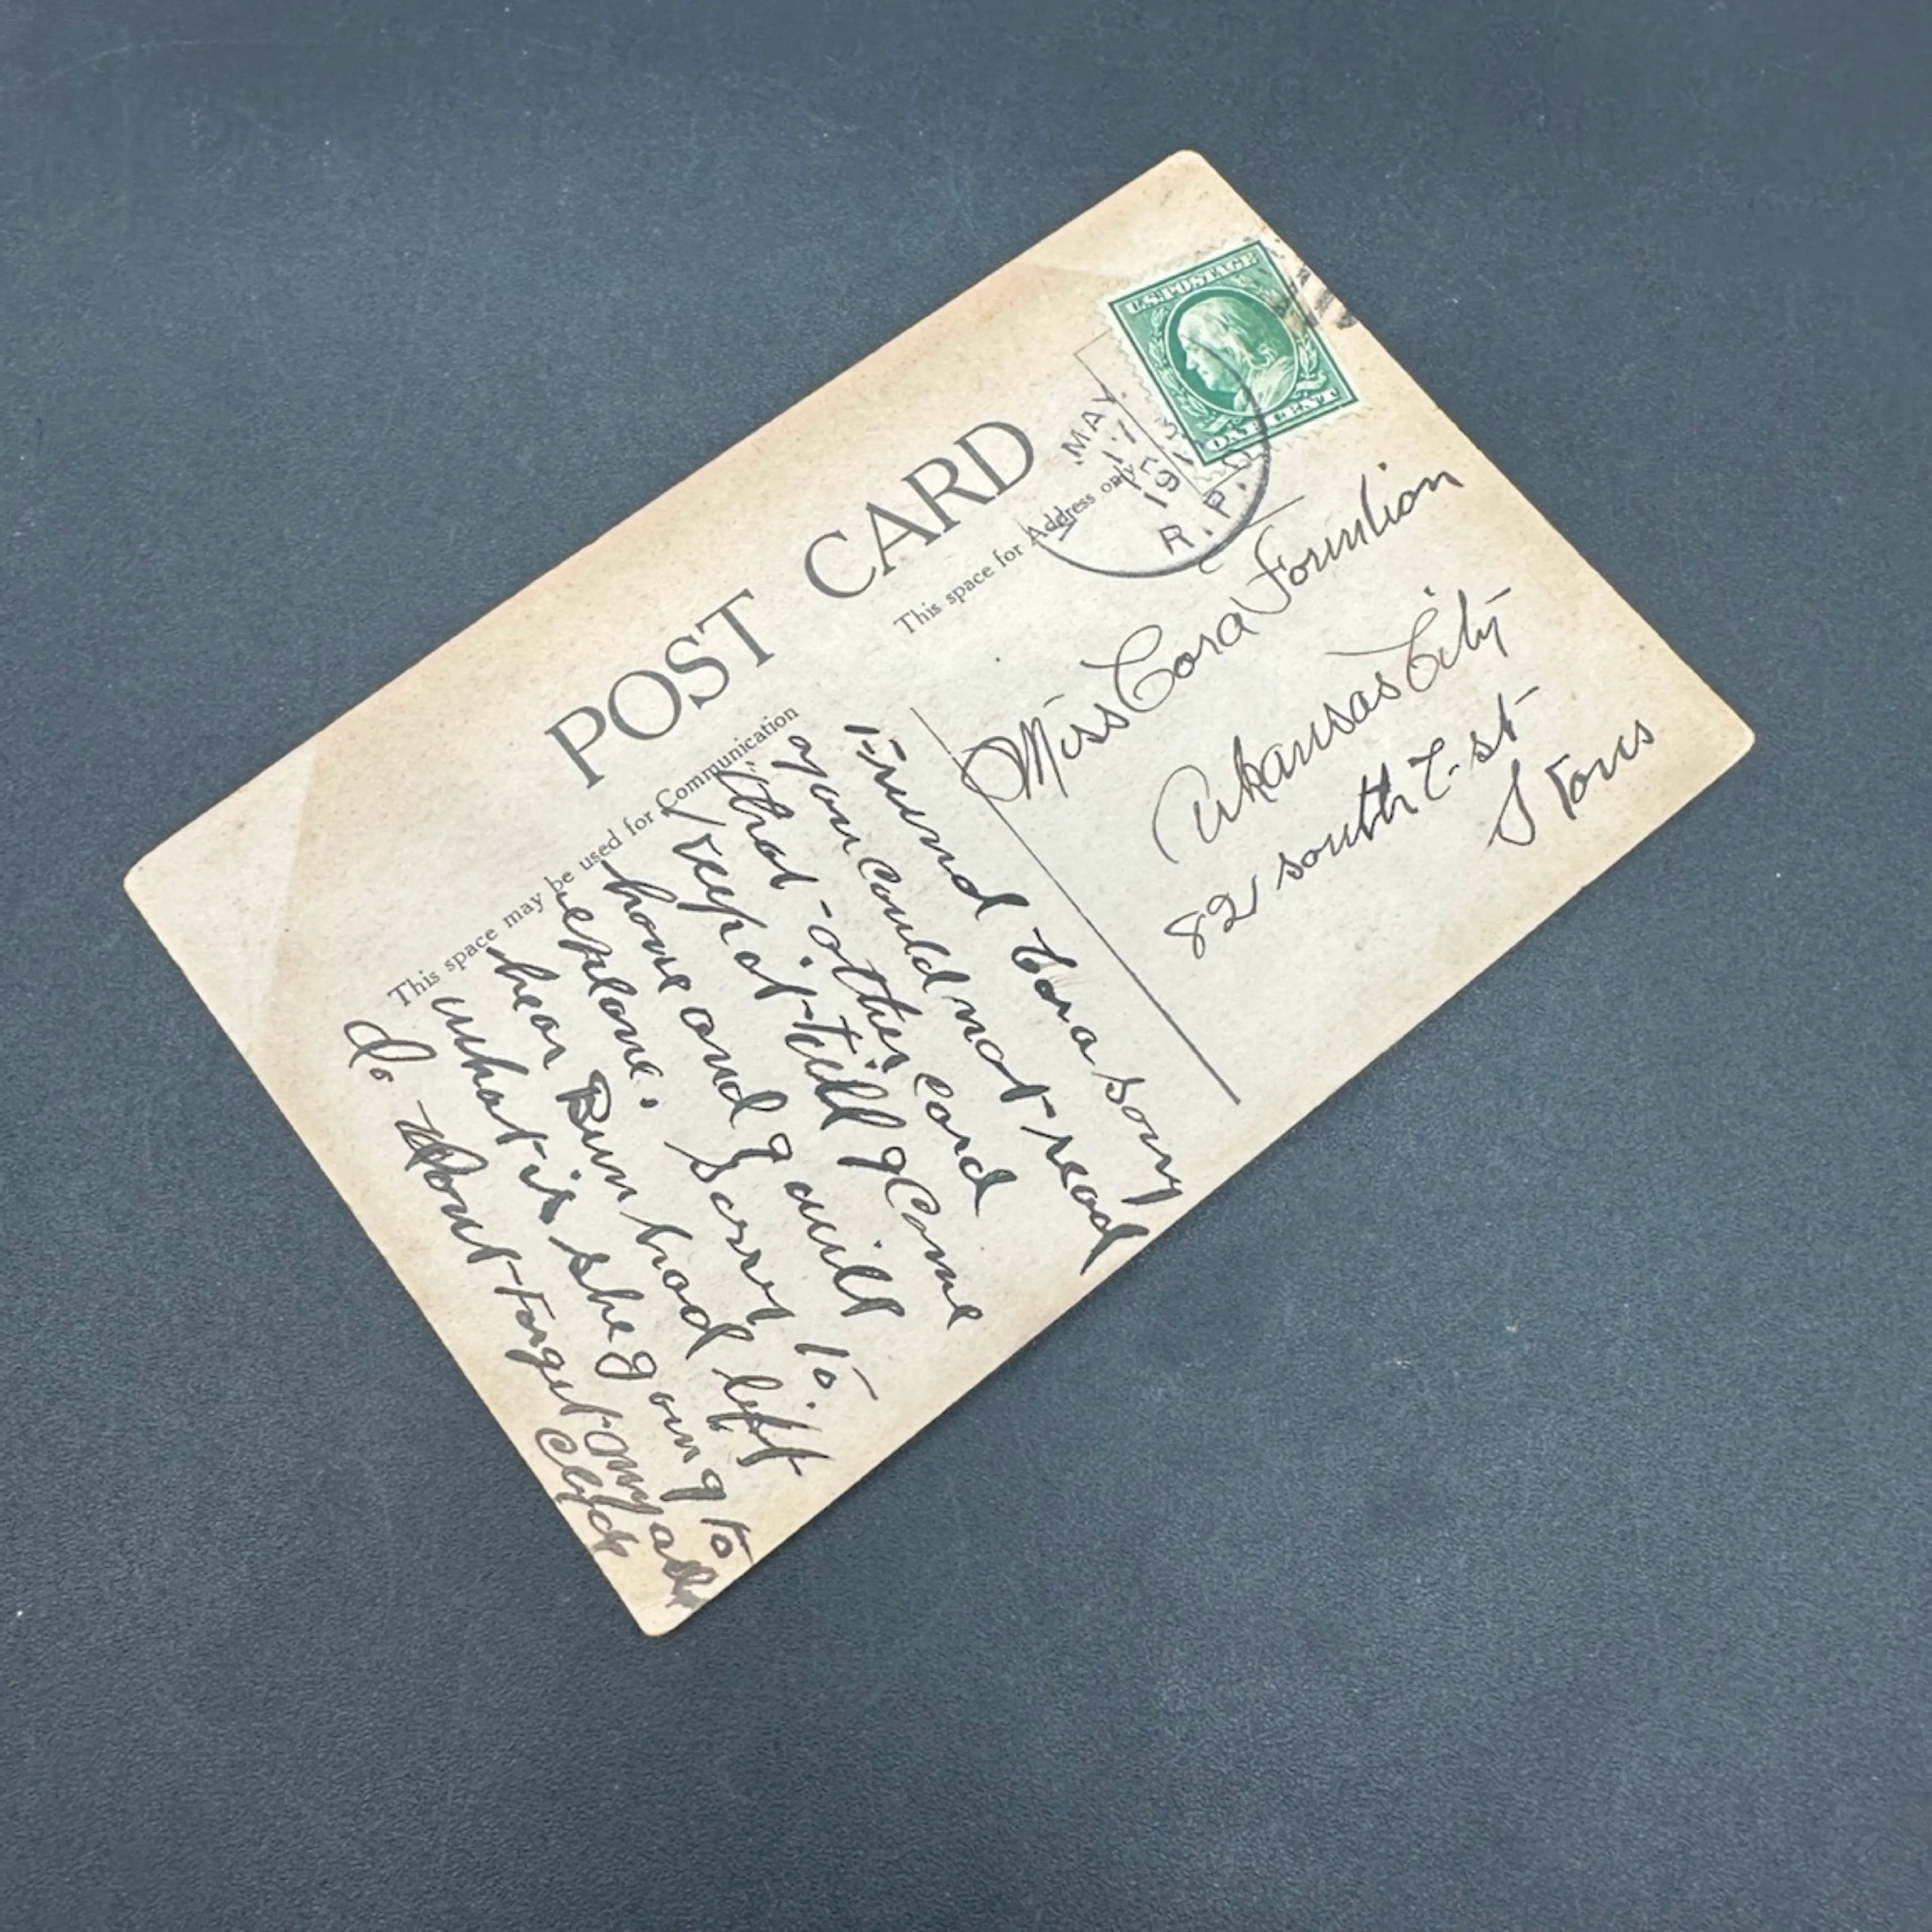 POST CARD
This space may be used for Communication
This space for Address only
U.S. POSTAGE
ONE CENT
MAY
17
191
R.P.O.
Miss Cora
Arkansas City
82 south st
Friend Cora sorry
you could not read
that other card
Keep it till I Come
home and I will
explane. Sorry to
hear Bun had left
what is she going to
do dont Forget my
Clyde